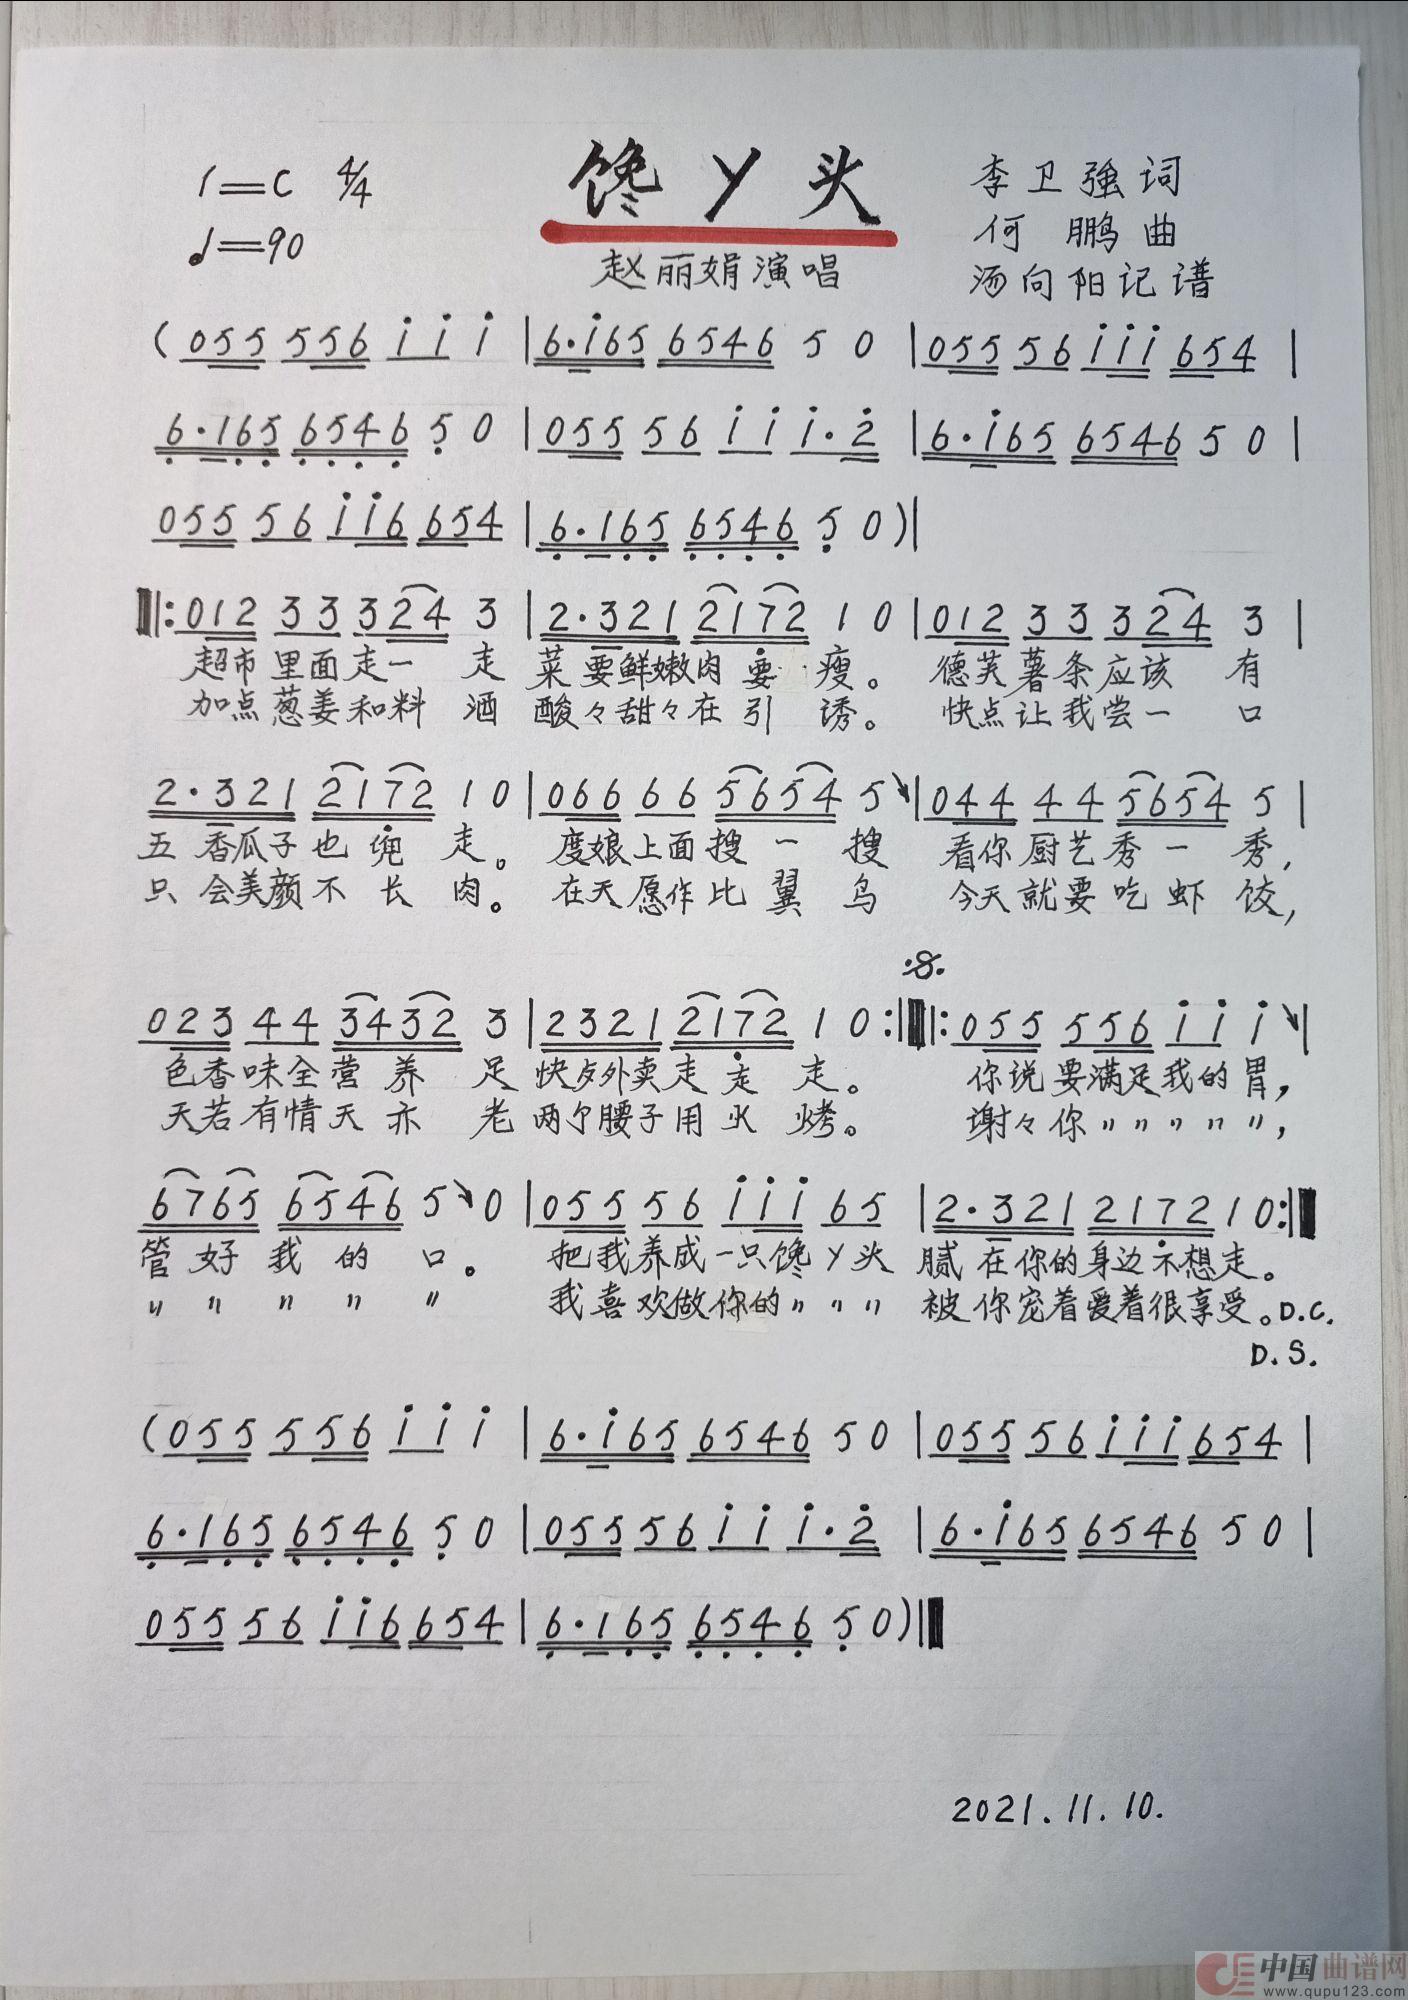 1=C 4/4
♩=90
馋丫头
赵丽娟演唱
李卫强词
何鹏曲
汤向阳记谱
(055 556 i i i | 6·i65 6546 5 0 | 055 56 iii 654 |
6·165 6546 5 0 | 055 56 i i i·2 | 6·i65 6546 5 0 |
055 56 ii6 654 | 6·165 6546 5 0)|
‖:012 33 324 3 | 2·321 2172 1 0 | 012 33 324 3 |
超市里面走一走 菜要鲜嫩肉要瘦。 德芙薯条应该有
加点葱姜和料酒 酸々甜々在引诱。 快点让我尝一口
2·321 2172 1 0 | 066 66 5654 5 | 044 44 5654 5 |
五香瓜子也兜走。 度娘上面搜一搜 看你厨艺秀一秀,
只会美颜不长肉。 在天愿作比翼鸟 今天就要吃虾饺,
𝄋
023 44 3432 3 | 2321 2172 1 0 :‖: 055 556 i i i |
色香味全营养足 快歺外卖走走走。 你说要满足我的胃,
天若有情天亦老 两个腰子用火烤。 谢々你〃〃〃〃〃,
6765 6546 5 0 | 055 56 iii 65 | 2·321 2172 1 0 :‖
管好我的口。 把我养成一只馋丫头 腻在你的身边不想走。
〃〃〃〃〃 我喜欢做你的〃〃〃 被你宠着爱着很享受。D.C.
D.S.
(055 556 i i i | 6·i65 6546 5 0 | 055 56 iii 654 |
6·165 6546 5 0 | 055 56 i i i·2 | 6·i65 6546 5 0 |
055 56 ii6 654 | 6·165 6546 5 0)‖
2021.11.10.
中国曲谱网
www.qupu123.com